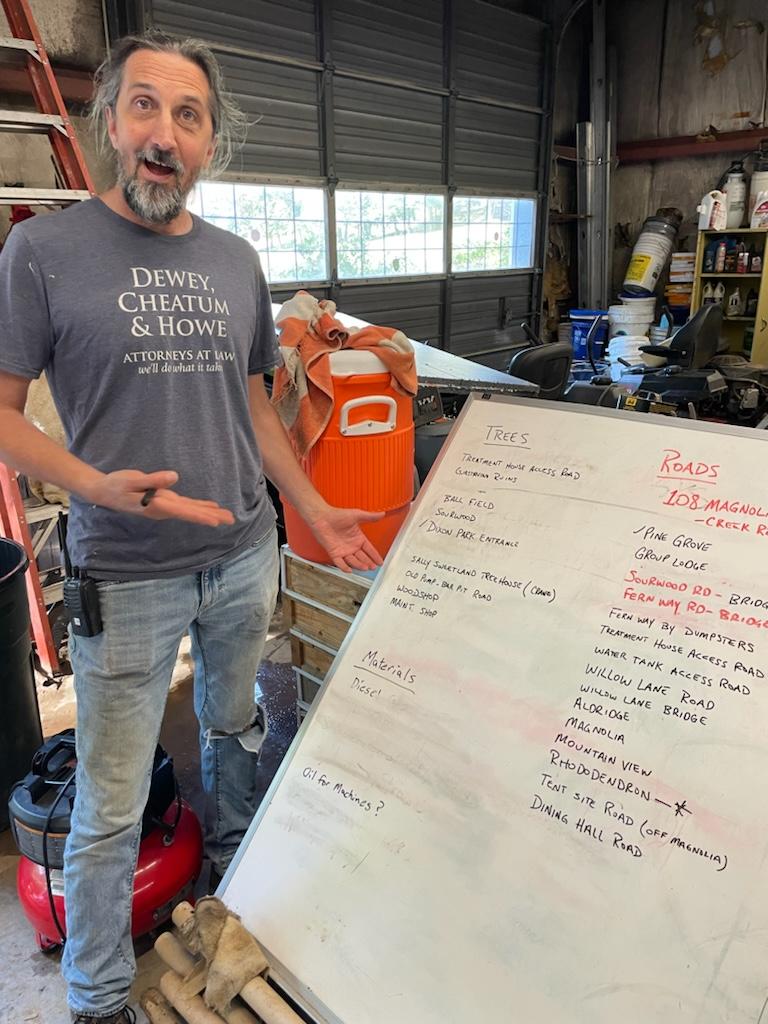 DEWEY,
CHEATUM
& HOWE
ATTORNEYS AT LAW
we'll do what it takes
TREES
TREATMENT HOUSE ACCESS ROAD
RUINS
BALL FIELD
SOURWOOD
/DIXON PARK ENTRANCE
SALLY SWEETLAND TREEHOUSE (CRANE)
OLD PUMP-BAR PIT ROAD
WOODSHOP
MAINT. SHOP
Materials
Diesel
Oil for Machines?
ROADS
108 MAGNOLIA
-CREEK
/PINE GROVE
GROUP LODGE
SOURWOOD RD - BRIDGE
FERN WAY RD- BRIDGE
FERN WAY BY DUMPSTERS
TREATMENT HOUSE ACCESS ROAD
WATER TANK ACCESS ROAD
WILLOW LANE ROAD
WILLOW LANE BRIDGE
ALDRIDGE
MAGNOLIA
MOUNTAIN VIEW
RHODODENDRON —*
TENT SITE ROAD (OFF MAGNOLIA)
DINING HALL ROAD